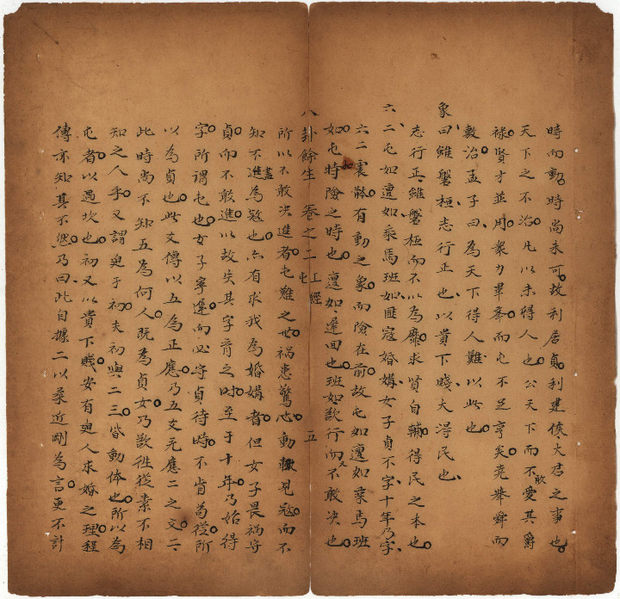 時而動時尚未可故利居貞利建侯大君之事也
天下之不治凡以未得人也公天下而不愛其爵
祿賢才並用衆力羣舉而屯不足亨矣堯舉舜而
敷治孟子曰為天下得人難以此也
象曰雖磐桓志行正也以貴下賤大得民也
志行正雖磐桓而不以為靡求賢自輔得民之本也
六二屯如邅如乘馬班如匪寇婚媾女子貞不字十年乃字
六二震體有動之象而險在前故屯如邅如乘馬班
如屯時險之時也邅如邅回也班如欲行而又不敢決也
八卦餘生 卷之二 上經 屯 五
所以不敢決進者屯難之世禍患驚心動輒見寇而不
知不進為寇也六有求我為婚媾者但女子畏禍守
貞而不敢進以故失其字育之時至于十年乃始得
字所謂屯也女子寧邅而必守貞待時不肯苟從所
以為貞也此爻傳以五為正應乃五爻无應二之文二
此時尚不知五為何人既為貞女乃欲徃從素不相
知之人乎又謂與于初夫初與二三皆動體也所以為
屯者以遇坎也初又以貴下賤安有與人求婚之理程
傳亦知其不然乃曰此自據二以柔近剛為言更不計